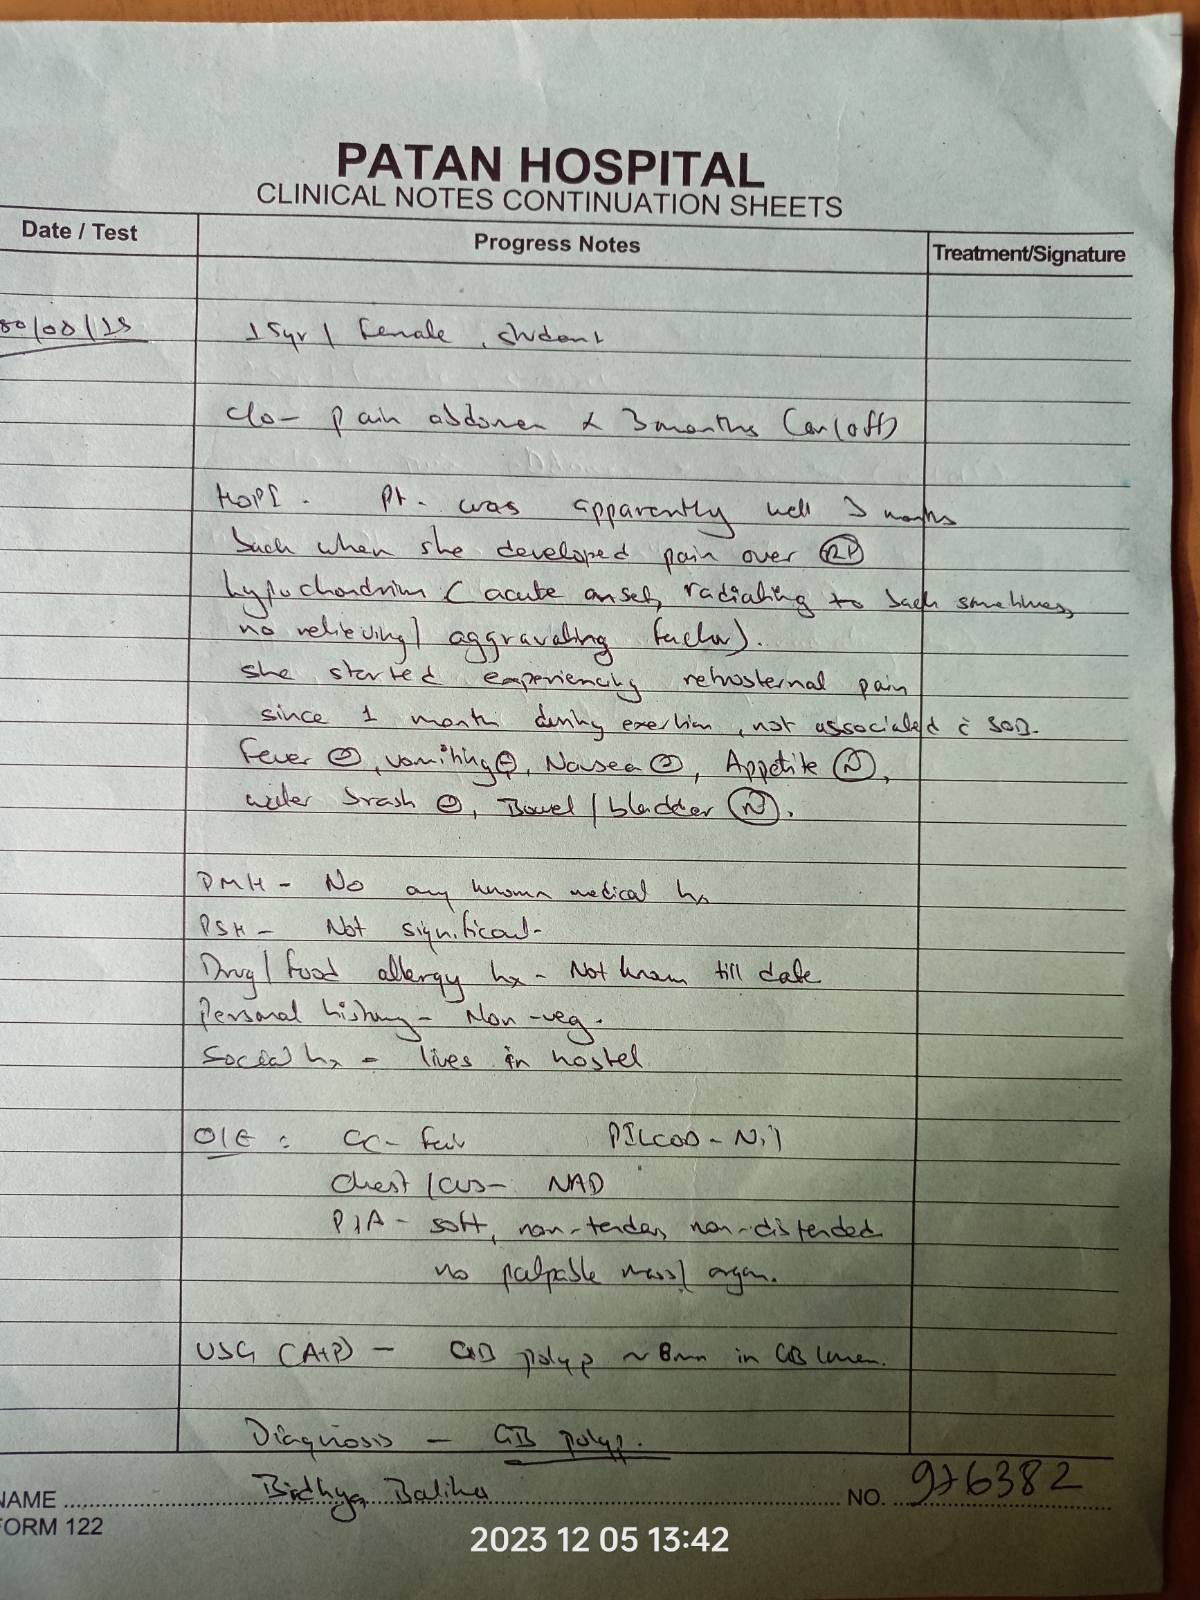 PATAN HOSPITAL
CLINICAL NOTES CONTINUATION SHEETS
Date / Test
Progress Notes
Treatment/Signature
80/08/18
15yr / Female, student
c/o - pain abdomen x 3 months (on/off)
HOPI - Pt. was apparently well 3 months
back when she developed pain over Rt
hypochondrium (acute onset, radiating to back sometimes,
no relieving/ aggravating factor).
she started experiencing retrosternal pain
since 1 month during exertion, not associated c̄ SOB.
Fever ⊖, vomiting ⊖, Nausea ⊖, Appetite Ⓝ,
water brash ⊖, Bowel / bladder Ⓝ.
PMH - No any known medical hx
PSH - Not significant.
Drug/ food allergy hx - Not known till date
Personal history - Non-veg.
Social hx - lives in hostel
O/E : GC - fair PILCCOD - Nil
Chest / CVS - NAD
P/A - soft, non-tender, non-distended
no palpable mass/ organ.
USG (A+P) - GB polyp ~ 8mm in GB lumen.
Diagnosis - GB polyp.
NAME Bidhya
NO. 976382
FORM 122
2023 12 05 13:42